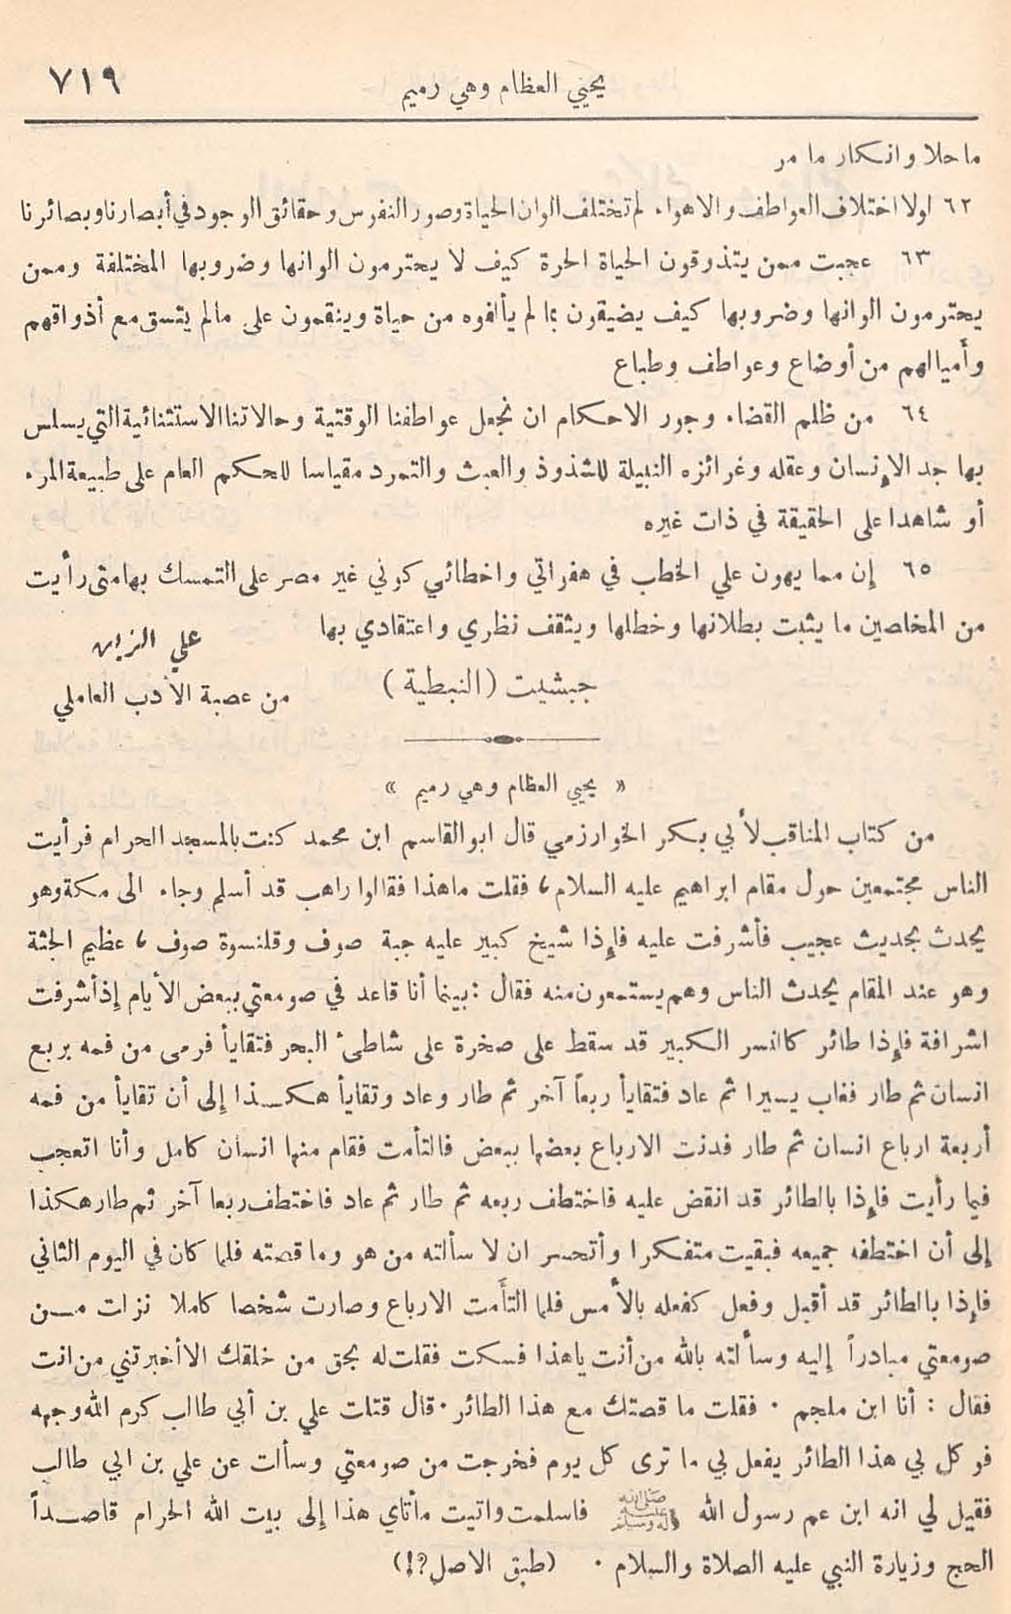 يحيي العظام وهي رميم ٧١٩
ما حلا وانكار ما مر
٦٢ لولا اختلاف العواطف والاهواء لم تختلف الوان الحياة وصور النفوس وحقائق الوجود في أبصارنا وبصائرنا
٦٣ عجبت ممن يتذوقون الحياة الحرة كيف لا يحترمون الوانها وضروبها المختلفة وممن
يحترمون الوانها وضروبها كيف يضيقون بما لم يألفوه من حياة وينقمون على مالم يتسق مع أذواقهم
وأميالهم من أوضاع وعواطف وطباع
٦٤ من ظلم القضاء وجور الاحكام ان نجعل عواطفنا الوقتية وحالاتنا الاستثنائية التي يسلس
بها جد الإنسان وعقله وغرائزه النبيلة للشذوذ والعبث والتمرد مقياسا للحكم العام على طبيعة المرء
أو شاهدا على الحقيقة في ذات غيره
٦٥ إن مما يهون علي الخطب في هفواتي واخطائي كوني غير مصر على التمسك بها متى رأيت
من المخلصين ما يثبت بطلانها وخطلها ويثقف نظري واعتقادي بها
علي الزين
جبشيت (النبطية) من عصبة الأدب العاملي
« يحيي العظام وهي رميم »
من كتاب المناقب لأبي بكر الخوارزمي قال ابو القاسم ابن محمد كنت بالمسجد الحرام فرأيت
الناس مجتمعين حول مقام ابراهيم عليه السلام ، فقلت ماهذا فقالوا راهب قد أسلم وجاء الى مكة وهو
يحدث بحديث عجيب فأشرفت عليه فإذا شيخ كبير عليه جبة صوف وقلنسوة صوف ، عظيم الجثة
وهو عند المقام يحدث الناس وهم يستمعون منه فقال : بينما أنا قاعد في صومعتي ببعض الأيام إذ أشرفت
اشرافة فإذا طائر كالنسر الكبير قد سقط على صخرة على شاطئ البحر فتقايأ فرمى من فمه بربع
انسان ثم طار فغاب يسيرا ثم عاد فتقايأ ربعاً آخر ثم طار وعاد وتقايأ هكـذا إلى أن تقايأ من فمه
أربعة ارباع انسان ثم طار فدنت الارباع بعضها ببعض فالتأمت فقام منها انسان كامل وأنا اتعجب
فيما رأيت فإذا بالطائر قد انقض عليه فاختطف ربعه ثم طار ثم عاد فاختطف ربعا آخر ثم طار هكذا
إلى أن اختطفه جميعه فبقيت متفكرا وأتحسر ان لا سألته من هو وما قصته فلما كان في اليوم الثاني
فإذا بالطائر قد أقبل وفعل كفعله بالأمس فلما التأمت الارباع وصارت شخصا كاملا نزلت مــن
صومعتي مبادراً إليه وسألته بالله من أنت ياهذا فسكت فقلت له بحق من خلقك الا أخبرتني من انت
فقال : أنا ابن ملجم . فقلت ما قصتك مع هذا الطائر . قال قتلت علي بن أبي طالب كرم الله وجهه
فوكل بي هذا الطائر يفعل بي ما ترى كل يوم فخرجت من صومعتي وسألت عن علي بن ابي طالب
فقيل لي انه ابن عم رسول الله صلى الله عليه وآله وسلم فاسلمت واتيت مأتاي هذا إلى بيت الله الحرام قاصــداً
الحج وزيارة النبي عليه الصلاة والسلام . (طبق الاصل؟!)